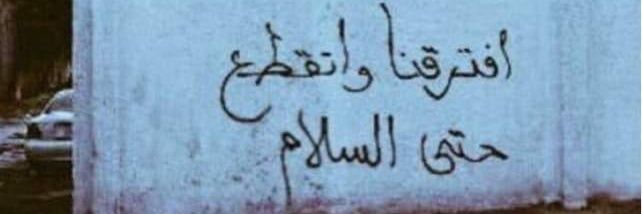 افترقنا وانقطع
حتى السلام